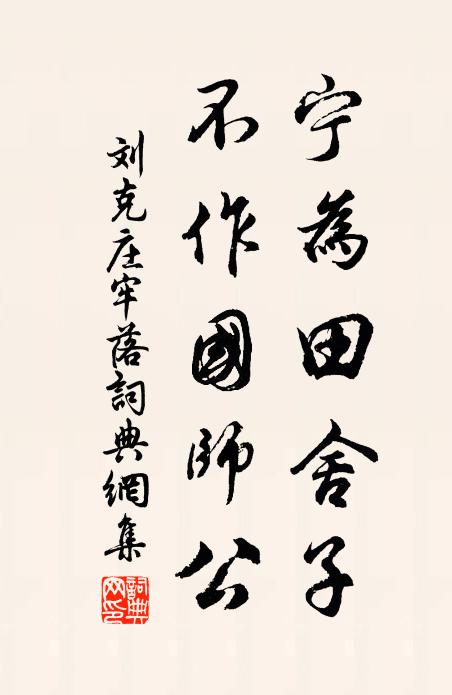 宁為田舍子
不作國師公
刘克庄牢落詞典網集
詞典網印